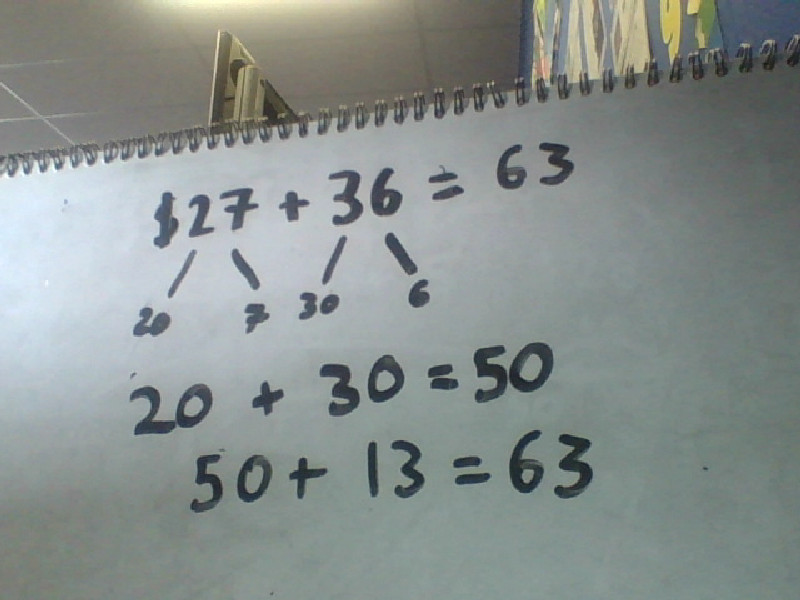 $27 + 36 = 63
20 7 30 6
20 + 30 = 50
50 + 13 = 63